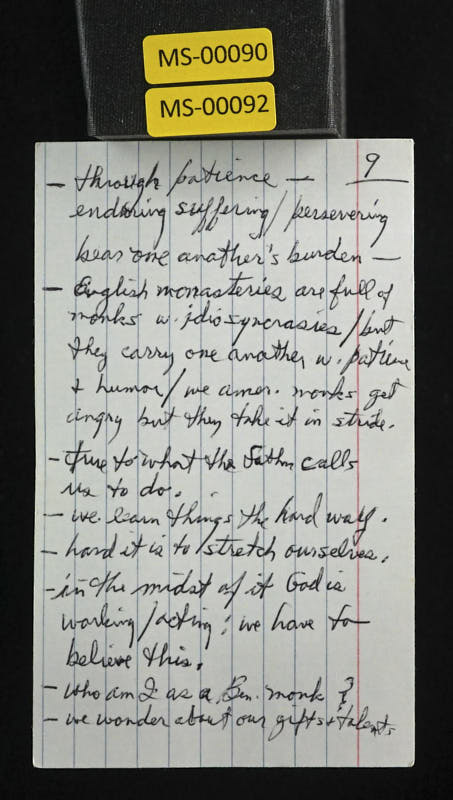 MS-00090
MS-00092
9
— through patience —
enduring suffering / persevering
bear one another's burden —
— English monasteries are full of
monks w. idiosyncrasies / but
they carry one another w. patience
+ humor / we amer. monks get
angry but they take it in stride.
- true to what the Father calls
us to do.
- we learn things the hard way.
- hard it is to stretch ourselves.
- in the midst of it God is
working / acting; we have to
believe this.
- who am I as a Ben. monk?
- we wonder about our gifts + talents